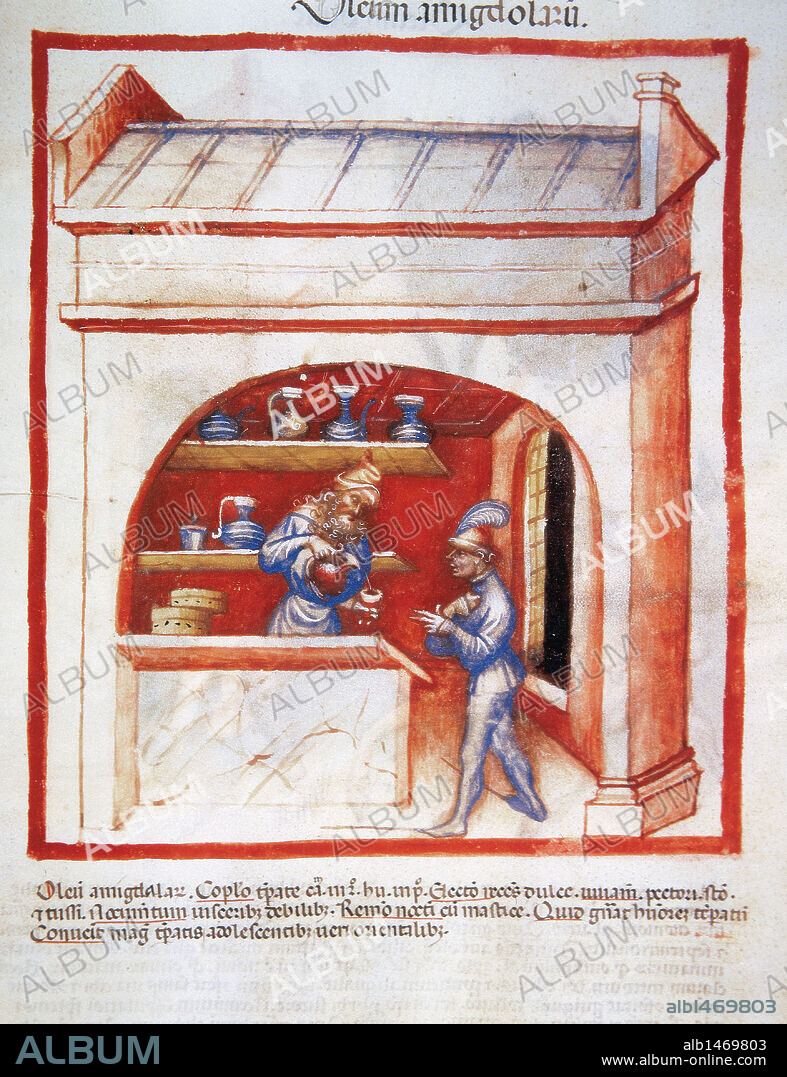 Oleum amigdolarũ.
Oleũ amigdalar. Coplo tp̃ate cã in hu. in p̃. Electõ dulce. iuuam̃. pectori. stõ.
⁊ tussi. Nocumtum uisceribȝ debilibȝ. Remõ nocti cũ mastice. Quid gñat hũores tẽpati
Conueĩt mag tp̃atis adolescentibȝ orientalibȝ.
ALBUM
alb1469803
ALBUM
alb1469803
www.album-online.com